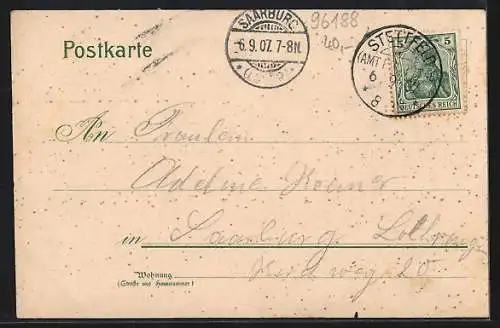 Postkarte
SAARBURG
6.9.07. 7-8N.
96188
40,-
STETTFELD
(AMT
6
8
5
DEUTSCHES REICH
An Fräulein
Adeline
in Saarburg Lothringen
weg 20
Wohnung
(Straße und Hausnummer)